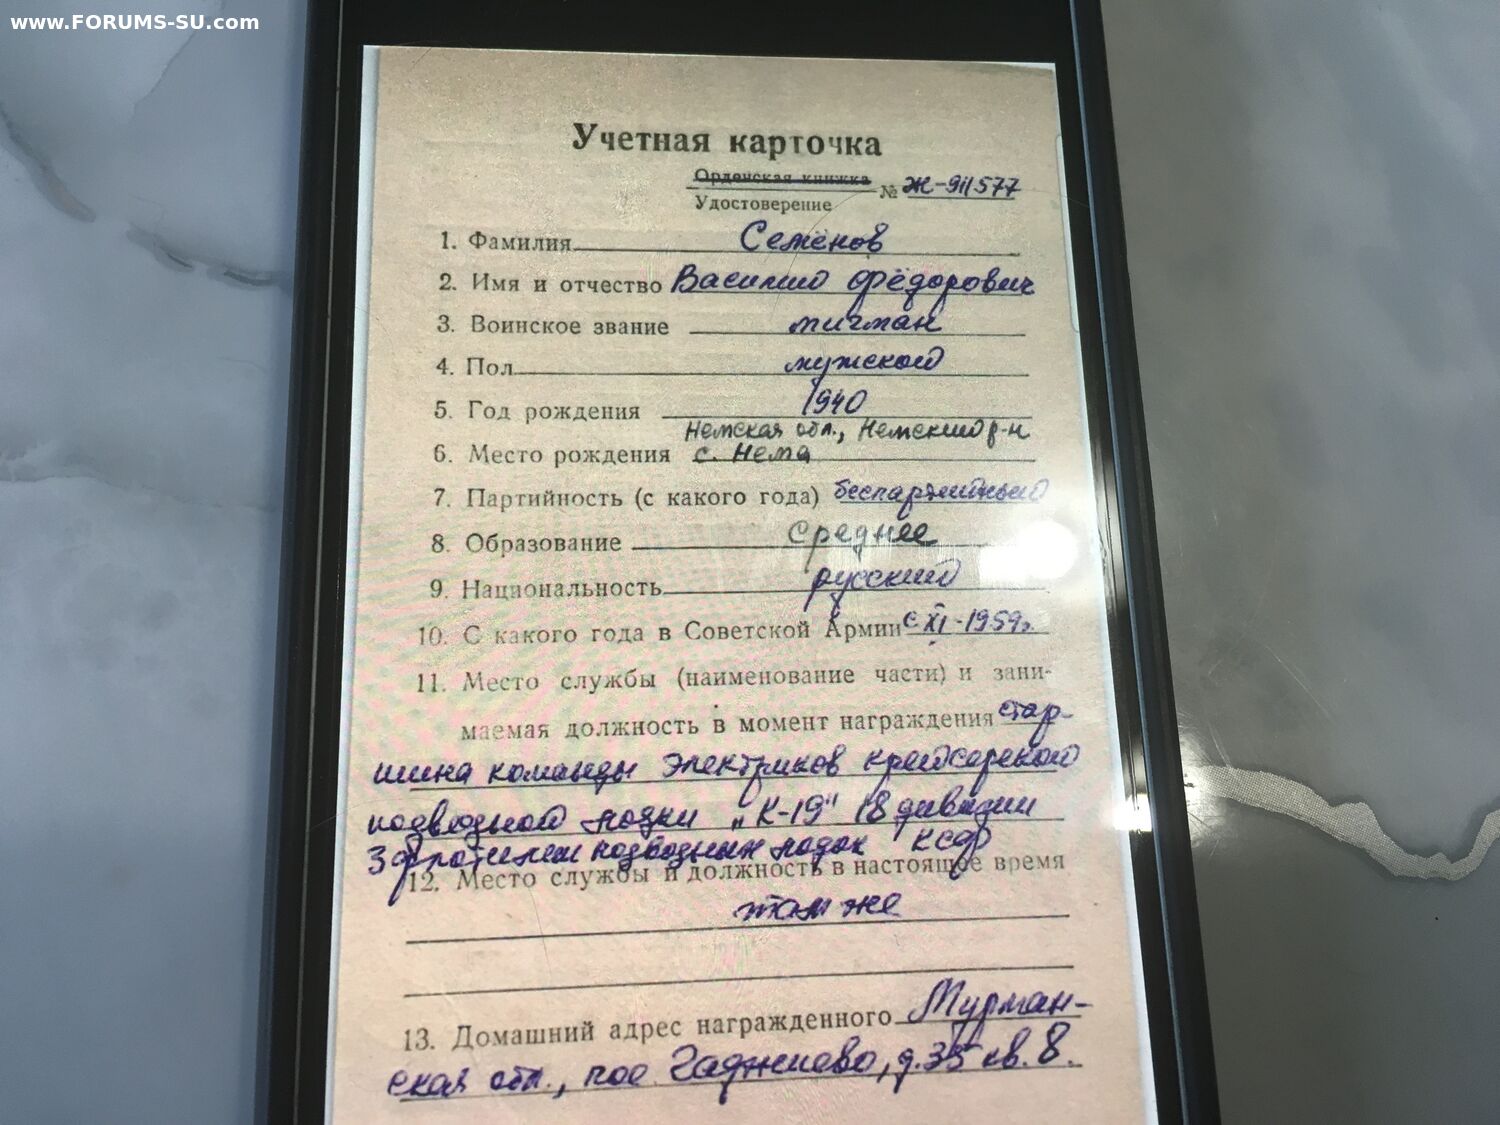 www.FORUMS-SU.com
Учетная карточка
Орденская книжка
Удостоверение № Ж-911577
1. Фамилия Семёнов
2. Имя и отчество Василий Фёдорович
3. Воинское звание мичман
4. Пол мужской
5. Год рождения 1940
Немская обл., Немский р-н
6. Место рождения с. Нема
7. Партийность (с какого года) беспартийный
8. Образование среднее
9. Национальность русский
10. С какого года в Советской Армии с XI-1959г.
11. Место службы (наименование части) и зани-
маемая должность в момент награждения стар-
шина команды электриков крейсерской
подводной лодки „К-19" 18 дивизии
3 флотилии подводных лодок КСФ
12. Место службы и должность в настоящее время
там же
13. Домашний адрес награжденного Мурман-
ская обл., пос. Гаджиево, д.35 кв. 8.